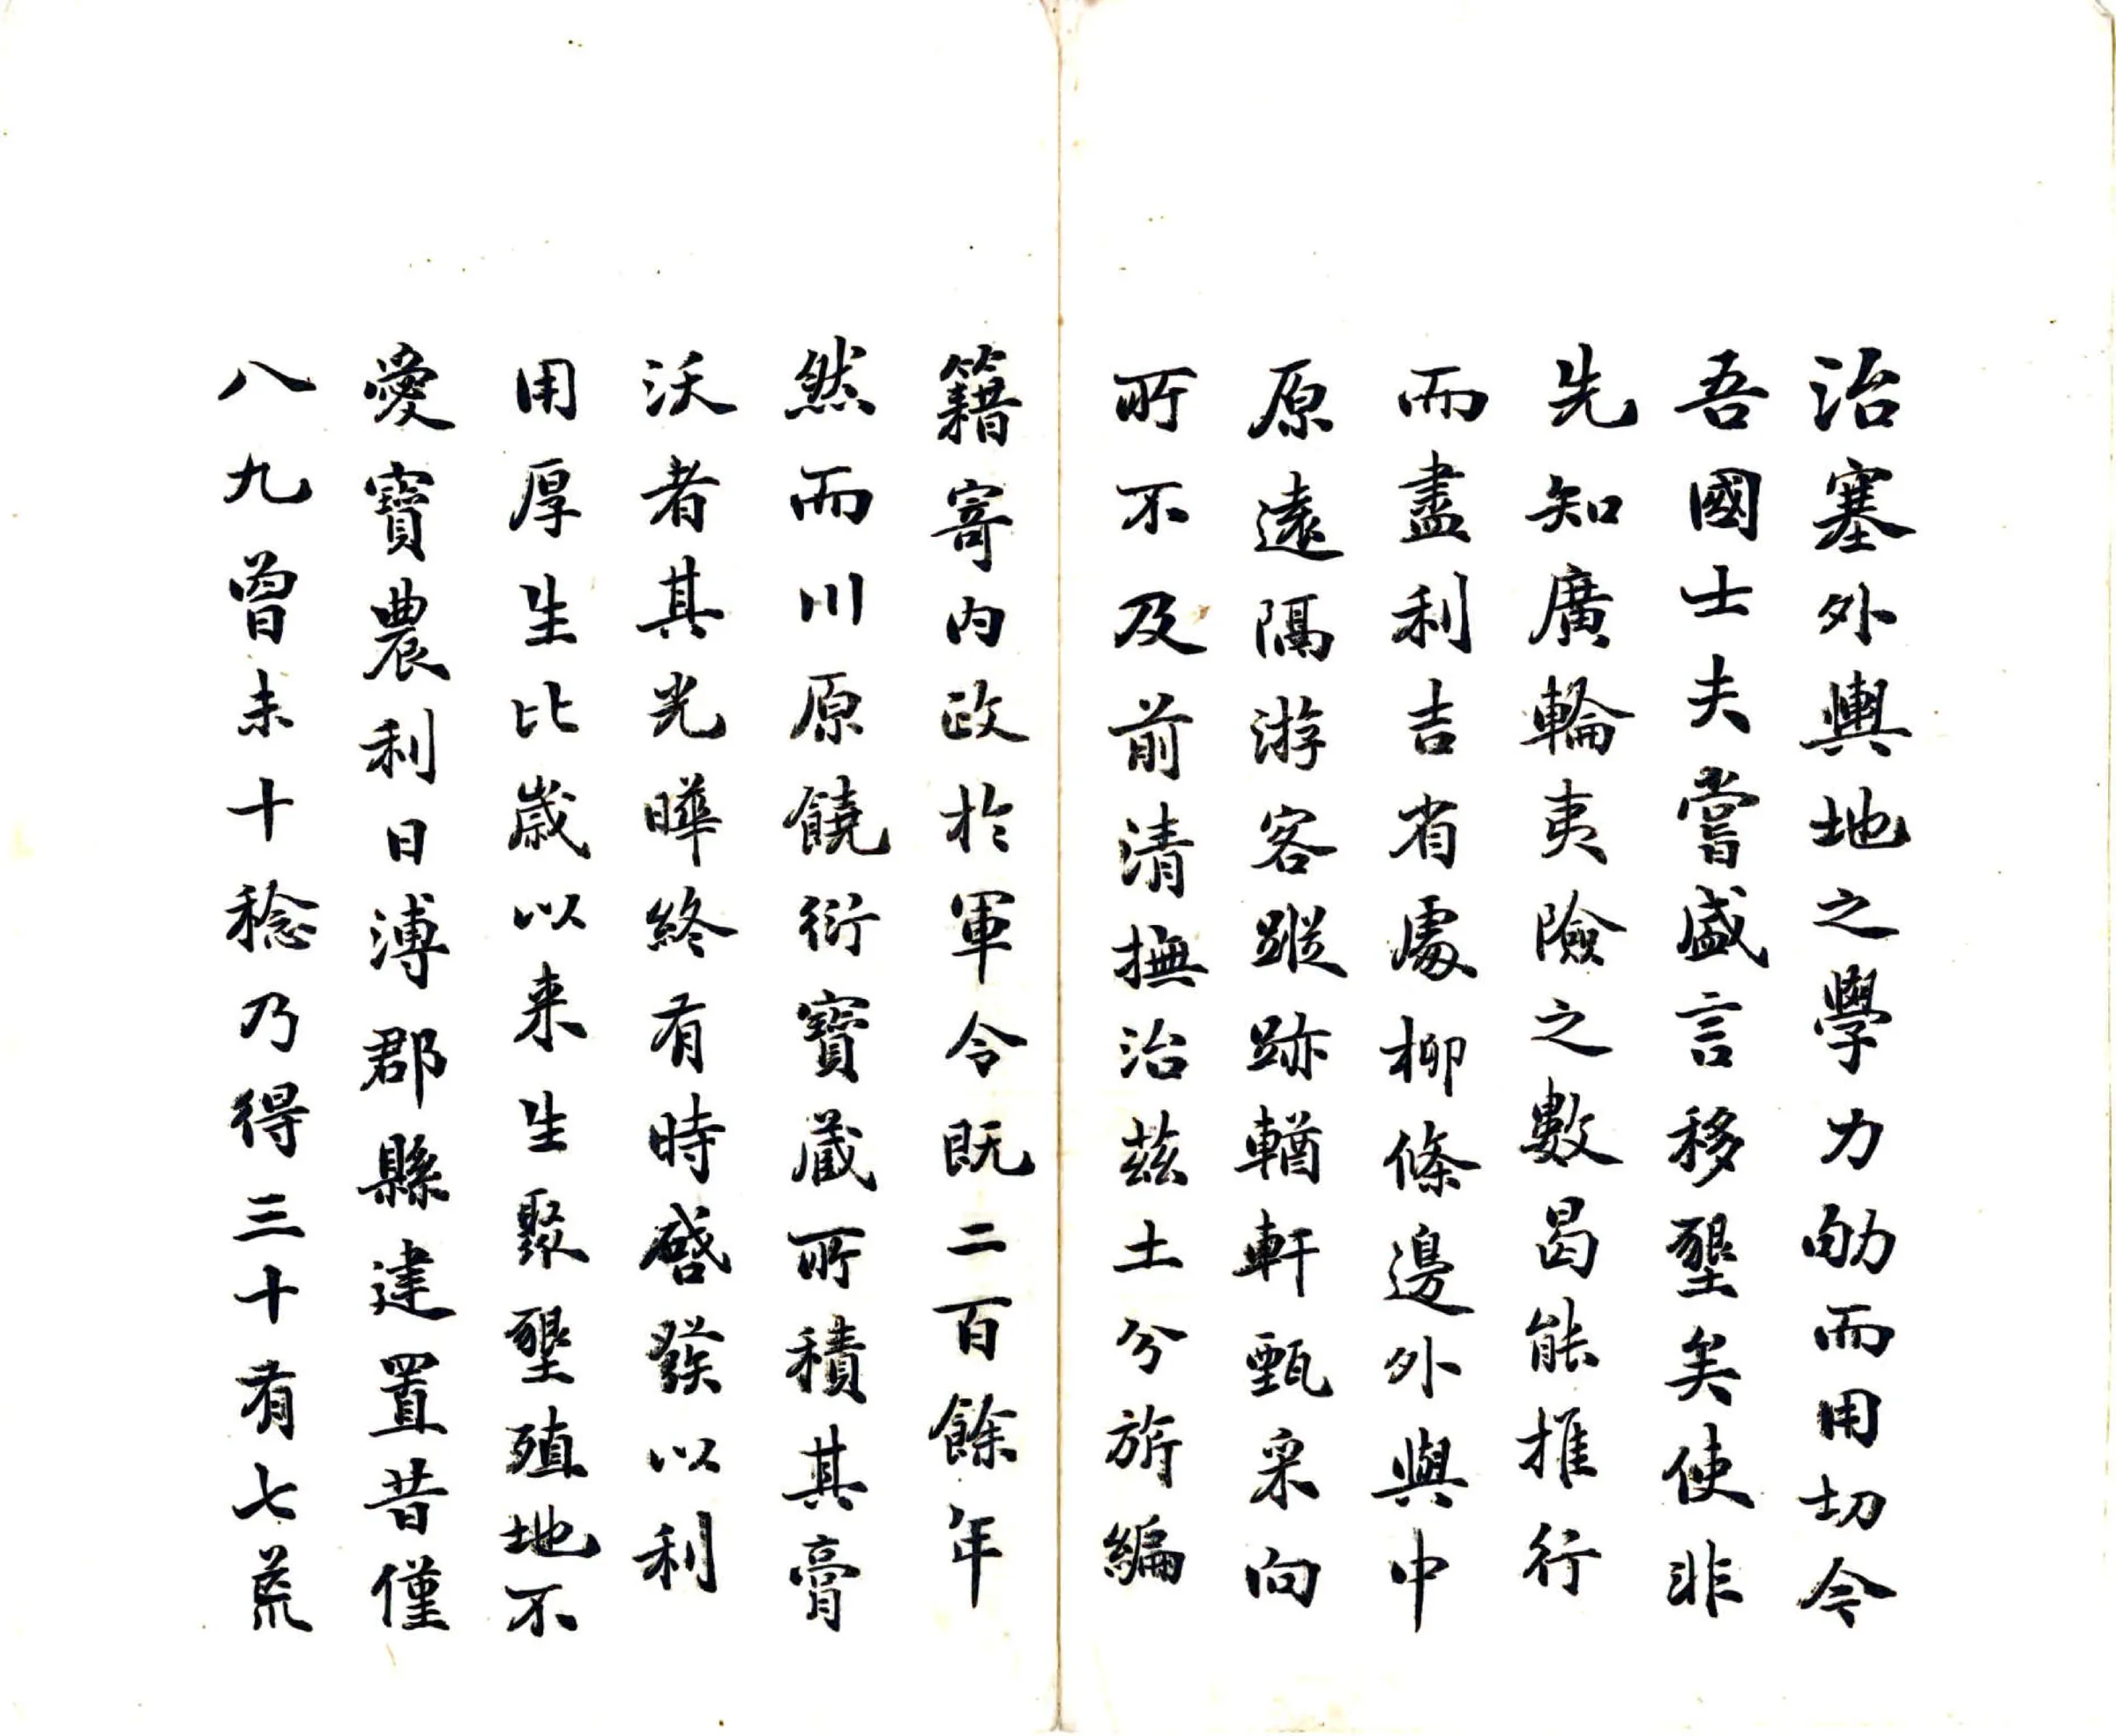 治塞外輿地之學力劬而用切今
吾國士夫嘗盛言移墾矣使非
先知廣輪夷險之數曷能推行
而盡利吉省處柳條邊外與中
原遠隔游客蹤跡輶軒甄采向
所不及前清撫治茲土分旂編
籍寄內政於軍令既二百餘年
然而川原饒衍寶藏所積其膏
沃者其光曄終有時啓發以利
用厚生比歲以来生聚墾殖地不
愛寶農利日溥郡縣建置昔僅
八九曾未十稔乃得三十有七荒